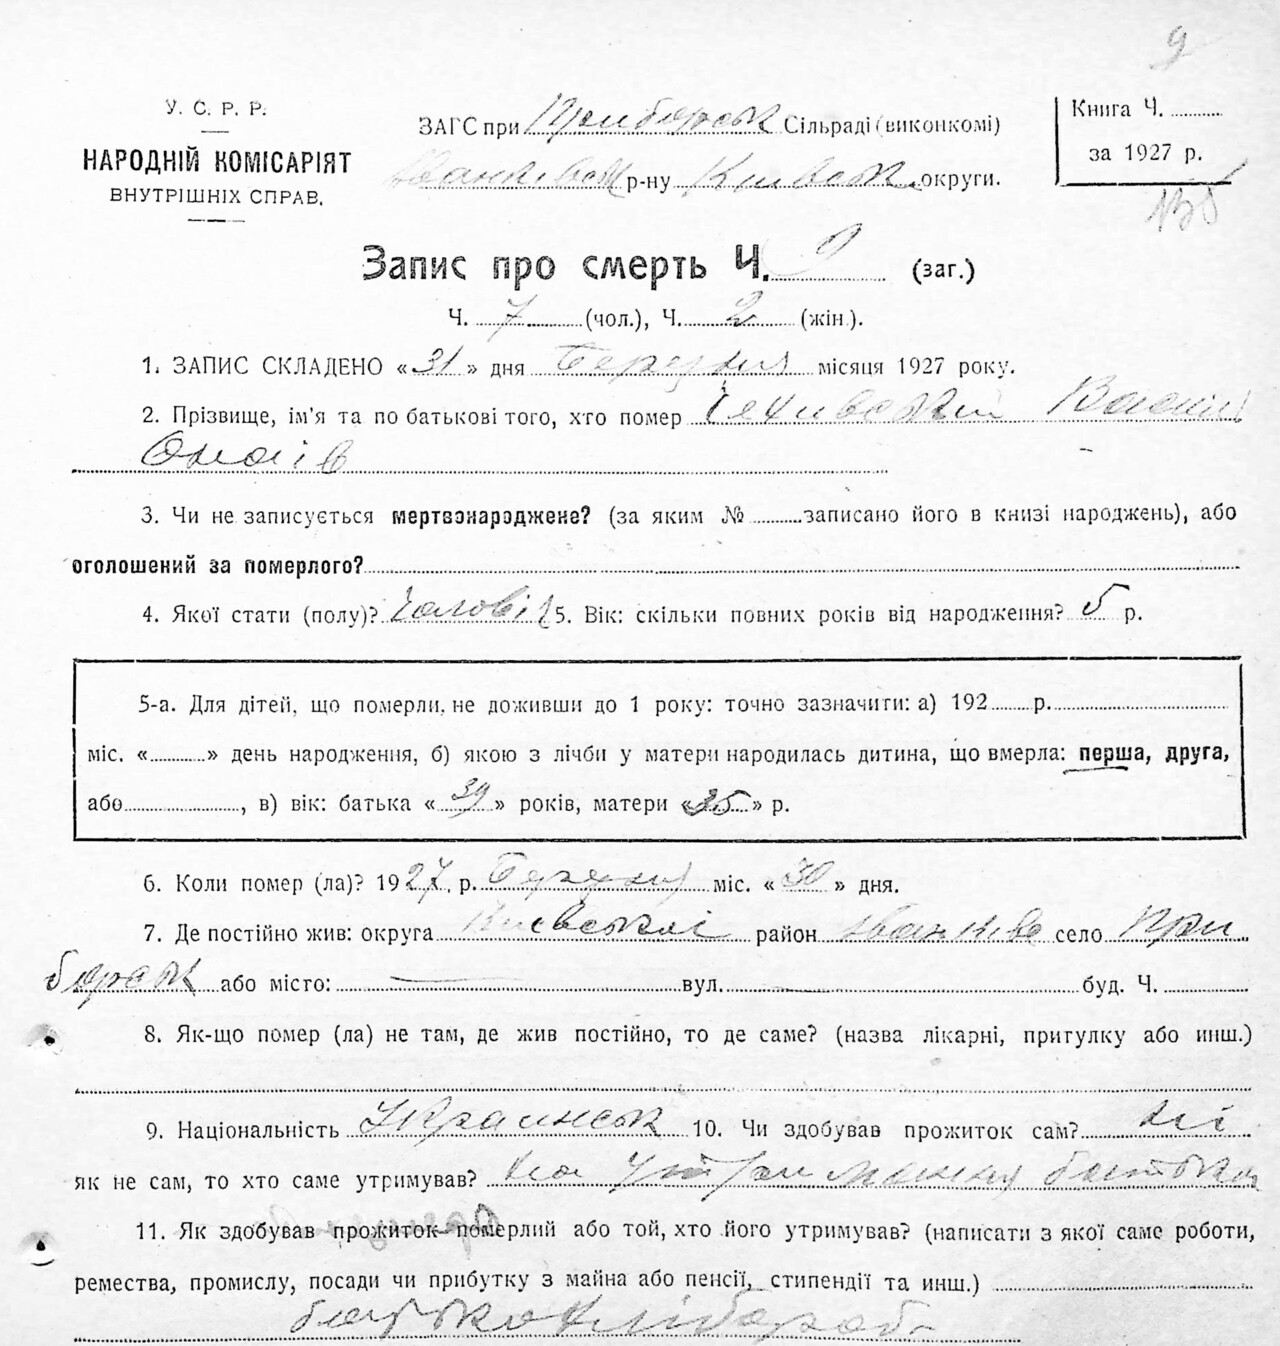 9
У. С. Р. Р.
НАРОДНІЙ КОМІСАРІЯТ
ВНУТРІШНІХ СПРАВ.
ЗАГС при Приборськ Сільраді (виконкомі)
р-ну Київськ округи.
Книга Ч. ...........
за 1927 р.
Запис про смерть Ч. 9 (заг.)
Ч. 7 (чол.), Ч. 2 (жін.).
1. ЗАПИС СКЛАДЕНО «31» дня Березня місяця 1927 року.
2. Прізвище, ім'я та по батькові того, хто помер Василь
3. Чи не записується мертвонароджене? (за яким № ..........записано його в книзі народжень), або
оголошений за померлого?
4. Якої стати (полу)? Чоловіч 5. Вік: скільки повних років від народження? 5 р.
5-а. Для дітей, що померли, не доживши до 1 року: точно зазначити: а) 192.......р.
міс. «...........» день народження, б) якою з лічби у матери народилась дитина, що вмерла: перша, друга,
або......................, в) вік: батька «39» років, матери «35» р.
6. Коли помер (ла)? 1927, р. Березня міс. «30» дня.
7. Де постійно жив: округа Києвської район Іванків село При
борськ або місто: — вул. — буд. Ч.
8. Як-що помер (ла) не там, де жив постійно, то де саме? (назва лікарні, притулку або инш.)
9. Національність Украинськ 10. Чи здобував прожиток сам? ні
як не сам, то хто саме утримував? на утриманню батька
11. Як здобував прожиток померлий або той, хто його утримував? (написати з якої саме роботи,
ремества, промислу, посади чи прибутку з майна або пенсії, стипендії та инш.)
батько хлібороб